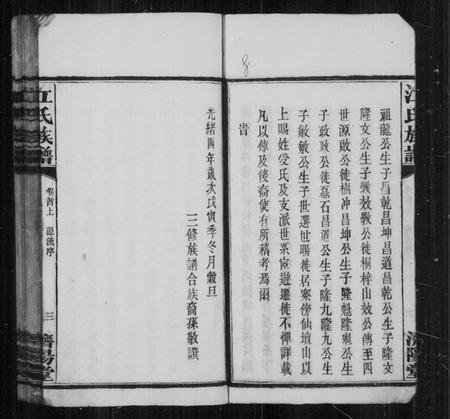 江氏族譜
祖龍公生子昌乾昌坤昌道昌乾公生子隆文
隆文公生子斅效斅公徙桐梓山效公傳至四
世源啟公徙樹冲昌坤公生子隆魁隆魁公生
子政政公徙磊石昌道公生子隆九隆九公生
子敏敏公生子世選世賜徙居寨傍仙壇山以
上賜姓受氏及支派世系宦遊遷徙不憚詳載
凡以傳及後裔使有所稽考焉爾
旹
濟陽堂
光緒四年歲次戊寅季冬月穀旦
三修族譜合族裔孫敬譔
江氏族譜
卷首上
源流序
三
濟陽堂